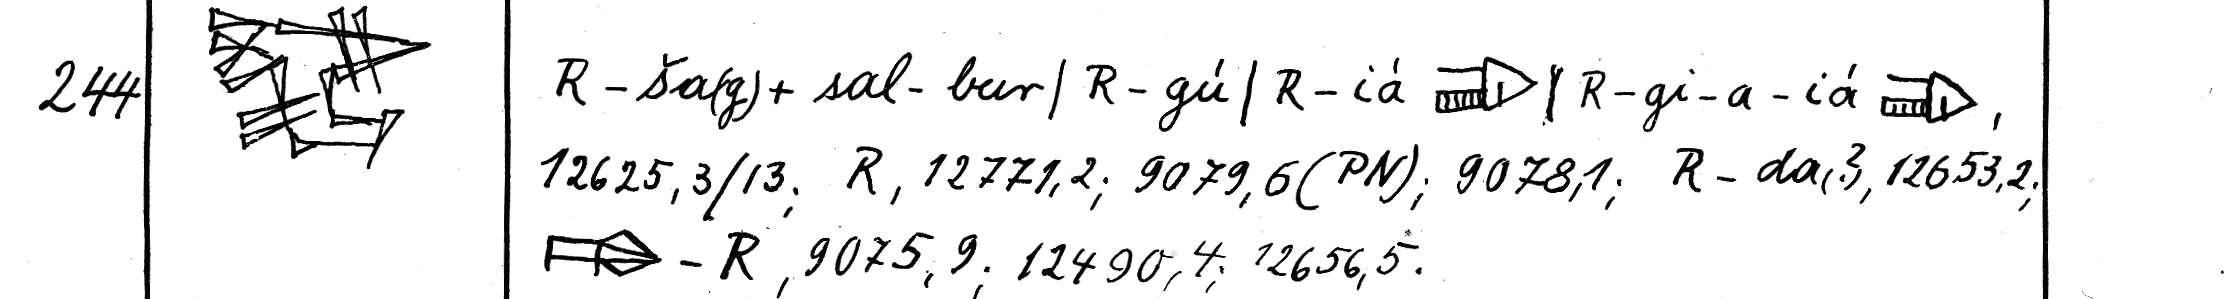 244 R - ša(g) + sal - bur / R - gú / R - iá / R - gi - a - iá ,
12625,3/13; R, 12771,2; 9079,6 (PN); 9078,1; R - da(?), 12653,2;
- R, 9075,9; 12490,4; 12656,5.